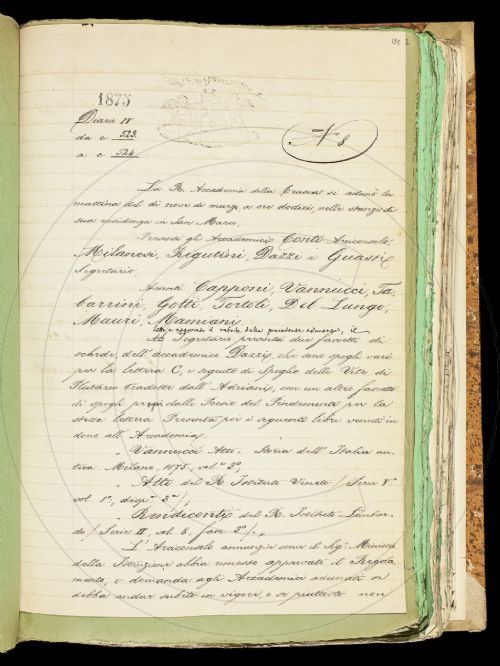 1875
Diario IV
da c 523
a c 524
N 8
La R. Accademia della Crusca si adunò la
mattina del dì nove di marzo a ore dodici, nelle stanze di
sua residenza in San Marco.
Presenti gli Accademici Conti Arciconsolo,
Milanesi, Rigutini, Dazzi e Guasti
Segretario.
Assenti Capponi, Vannucci, Ta-
barrini, Gotti, Tortoli, Del Lungo,
Mauri, Mamiani.
Letto e approvato il verbale della precedente adunanza, il
Segretario presenta due fascetti di
schede, dell'accademico Dazzi, che sono spogli vari
per la lettera C, e seguito di Spoglio delle Vite di
Plutarco tradotte dall'Adriani, con un altro fascetto
di spogli presi dalle Poesie del Pindemonte per la
stessa lettera. Presenta poi i seguenti libri venuti in
dono all'Accademia.
- Vannucci Atto - Storia dell'Italia an-
tica. Milano, 1875, vol. 3º
- Atti del R. Istituto Veneto / Serie Vª
vol 1º, disp. 3ª /
- Rendiconti del R. Istituto Lombar-
do / Serie II, vol. 8, fasc 2º /
L'Arciconsolo annunzia come il Sig. Ministro
della Istruzione abbia rimesso approvato il Regola-
mento, e domanda agli Accademici adunati se
debba andar subito in vigore, o se piuttosto non